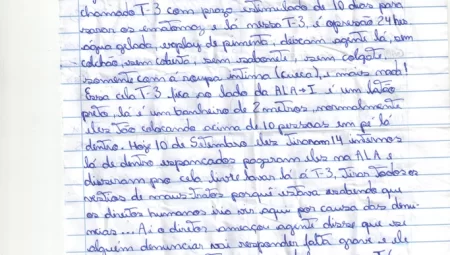 chamado T-3 com prazo estimulado de 10 dias para
sarar os ematomas, e lá nessa T-3, é opressão 24 hrs
água gelada, espley de pimenta, deixam agente lá, sem
colchão, sem coberta, sem sabonete, sem colgate,
somente com a roupa intima (cueca), e mais nada!
Essa cela T-3 fica ao lado da ALA → I é um latão
preto, lá é um banheiro de 2 metros, normalmente
eles tão colocando acima de 10 pessoas em pé lá
dentro. Hoje 10 de Setembro eles tiraram 14 internos
lá de dentro espancados pegaram eles na ALA e
disseram pro cela livre lavar lá a T-3, tirar todos os
vestios de maus-tratos porquê estava sabendo que
os direitos humanos iria vir aqui por causa das denu-
ncias... Ai o diretor ameaçou agente disse que se
alguém denunciar vai responder falta grave e ele